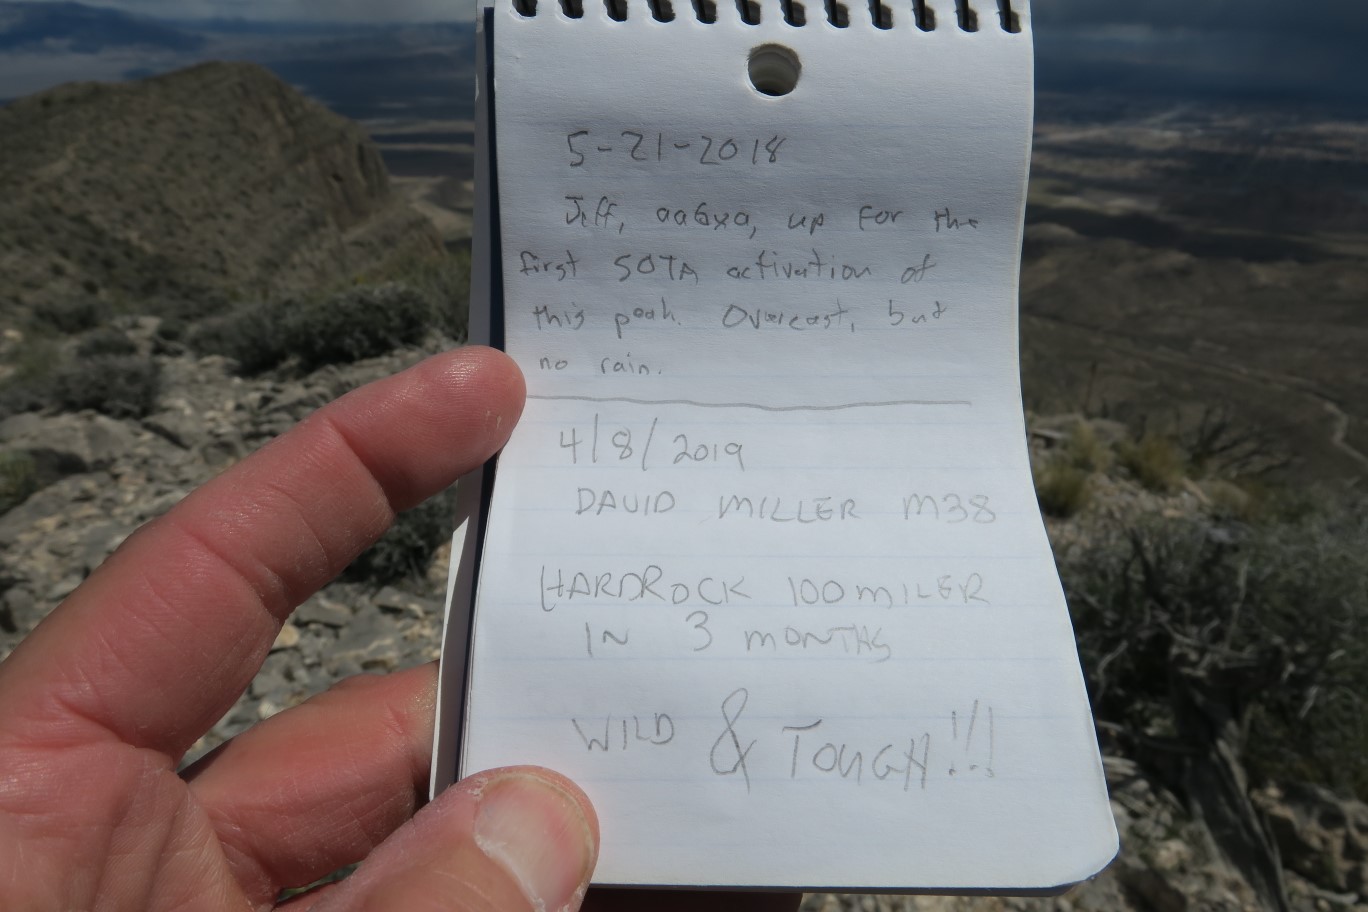 5-21-2018
Jeff, aa6xa, up for the
first SOTA activation of
this peak. Overcast, but
no rain.
4/8/2019
DAVID MILLER M38
HARDROCK 100 MILER
IN 3 MONTHS
WILD & TOUGH!!!